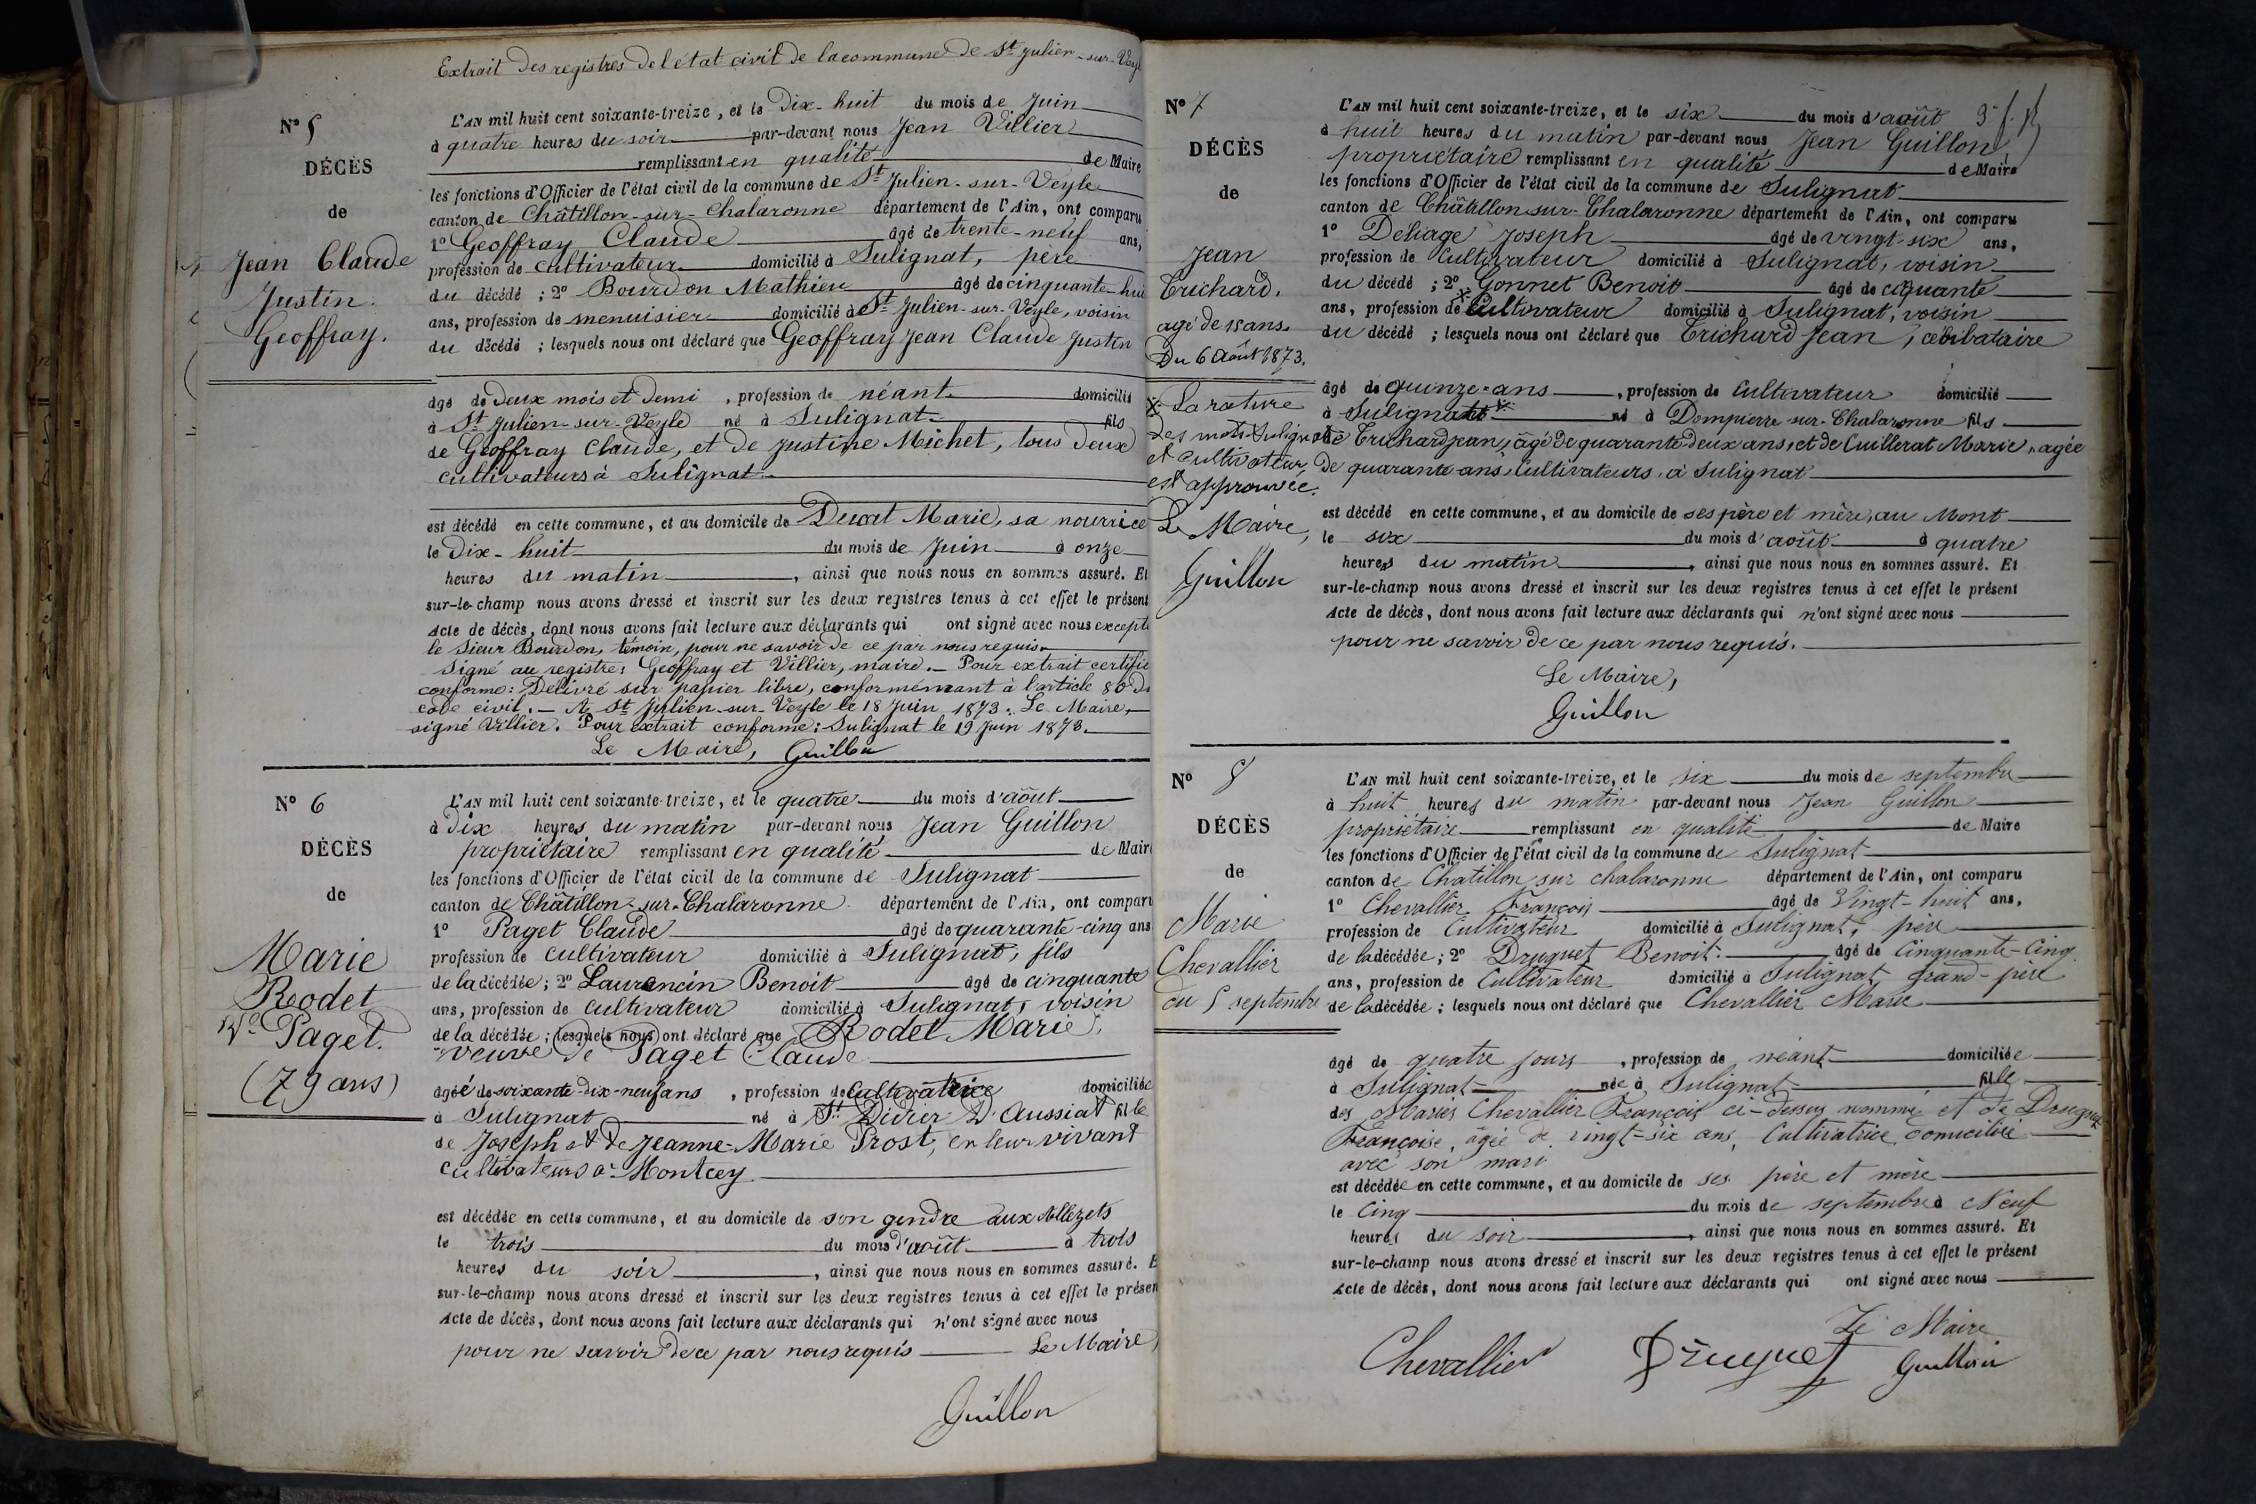 Extrait des registres de l'état civil de la commune de St Julien-sur-Veyle
N° 5
DÉCÈS
de
Jean Claude
Justin
Geoffray.
L'AN mil huit cent soixante-treize, et le Dix-huit du mois de Juin
à quatre heures du soir par-devant nous Jean Villier
remplissant en qualité de Maire
les fonctions d'Officier de l'état civil de la commune de St Julien-sur-Veyle
canton de Châtillon-sur-Chalaronne département de l'Ain, ont comparu
1° Geoffray Claude âgé de trente-neuf ans,
profession de cultivateur domicilié à Sulignat, père
du décédé ; 2° Bourdon Mathieu âgé de cinquante-huit
ans, profession de menuisier domicilié à St Julien-sur-Veyle, voisin
du décédé ; lesquels nous ont déclaré que Geoffray Jean Claude Justin
âgé de deux mois et demi , profession de néant domicilié
à St Julien-sur-Veyle né à Sulignat fils
de Geoffray Claude, et de Justine Michet, tous deux
cultivateurs à Sulignat
est décédé en cette commune, et au domicile de Marie, sa nourrice
le Dix-huit du mois de Juin à onze
heures du matin , ainsi que nous nous en sommes assuré. Et
sur-le-champ nous avons dressé et inscrit sur les deux registres tenus à cet effet le présent
Acte de décès, dont nous avons fait lecture aux déclarants qui ont signé avec nous excepté
le sieur Bourdon, témoin, pour ne savoir de ce par nous requis
Signé au registre: Geoffray et Villier, maire. — Pour extrait certifié
conforme: Délivré sur papier libre, conformément à l'article 80 du
code civil. — A St Julien-sur-Veyle le 18 Juin 1873. Le Maire,
signé Villier. Pour extrait conforme: Sulignat le 19 Juin 1873.
Le Maire, Guillon
N° 6
DÉCÈS
de
Marie
Rodet
Ve Paget.
(79 ans)
L'AN mil huit cent soixante-treize, et le quatre du mois d'août
à dix heures du matin par-devant nous Jean Guillon
propriétaire remplissant en qualité de Maire
les fonctions d'Officier de l'état civil de la commune de Sulignat
canton de Châtillon-sur-Chalaronne département de l'Ain, ont comparu
1° Paget Claude âgé de quarante-cinq ans
profession de cultivateur domicilié à Sulignat, fils
de la décédée ; 2° Laurencin Benoit âgé de cinquante
ans, profession de cultivateur domicilié à Sulignat, voisin
de la décédée ; lesquels nous ont déclaré que Rodet Marie,
veuve de Paget Claude
âgée de soixante-dix-neuf ans , profession de Cultivatrice domiciliée
à Sulignat né à St Didier D'Aussiat fille
de Joseph et de Jeanne-Marie Prost, en leur vivant
cultivateurs à Montcey
est décédée en cette commune, et au domicile de son gendre aux Allezets
le trois du mois d'août à trois
heures du soir , ainsi que nous nous en sommes assuré. E
sur-le-champ nous avons dressé et inscrit sur les deux registres tenus à cet effet le présen
Acte de décès, dont nous avons fait lecture aux déclarants qui n'ont signé avec nous
pour ne savoir de ce par nous requis Le Maire,
Guillon
N° 7
DÉCÈS
de
Jean
Trichard.
agé de 15 ans.
Du 6 Août 1873.
X La rature
des mots Sulignat
et cultivateur
est approuvée.
Le Maire,
Guillon
L'AN mil huit cent soixante-treize, et le six du mois d'août
à huit heures du matin par-devant nous Jean Guillon
propriétaire remplissant en qualité de Maire
les fonctions d'Officier de l'état civil de la commune de Sulignat
canton de Châtillon-sur-Chalaronne département de l'Ain, ont comparu
1° Deliage Joseph âgé de vingt-six ans,
profession de Cultivateur domicilié à Sulignat, voisin
du décédé ; 2° Gonnet Benoit âgé de cinquante
ans, profession de X Cultivateur domicilié à Sulignat, voisin
du décédé ; lesquels nous ont déclaré que Trichard Jean, célibataire
âgé de quinze ans , profession de Cultivateur domicilié
à Sulignat X né à Dompierre-sur-Chalaronne fils
de Trichard Jean, âgé de quarante-deux ans, et de Cuillerat Marie, agée
de quarante ans, Cultivateurs à Sulignat
est décédé en cette commune, et au domicile de ses père et mère, au Mont
le six du mois d'août à quatre
heures du matin , ainsi que nous nous en sommes assuré. Et
sur-le-champ nous avons dressé et inscrit sur les deux registres tenus à cet effet le présent
Acte de décès, dont nous avons fait lecture aux déclarants qui n'ont signé avec nous
pour ne savoir de ce par nous requis.
Le Maire,
Guillon
N° 8
DÉCÈS
de
Marie
Chevallier
du 5 septembre
L'AN mil huit cent soixante-treize, et le six du mois de septembre
à huit heures du matin par-devant nous Jean Guillon
propriétaire remplissant en qualité de Maire
les fonctions d'Officier de l'état civil de la commune de Sulignat
canton de Chatillon sur chalaronne département de l'Ain, ont comparu
1° Chevallier François âgé de Vingt-huit ans,
profession de Cultivateur domicilié à Sulignat, père
de la décédée ; 2° Druguet Benoit. âgé de Cinquante-Cinq
ans, profession de Cultivateur domicilié à Sulignat, grand-père
de la décédée ; lesquels nous ont déclaré que Chevallier Marie
âgé de quatre jours , profession de néant domiciliée
à Sulignat née à Sulignat fille
des Mariés Chevallier François ci-dessus nommé et de Druguet
Françoise, âgée de vingt-six ans, Cultivatrice, domiciliée
avec son mari
est décédée en cette commune, et au domicile de ses père et mère
le Cinq du mois de septembre à Neuf
heures du soir , ainsi que nous nous en sommes assuré. Et
sur-le-champ nous avons dressé et inscrit sur les deux registres tenus à cet effet le présent
Acte de décès, dont nous avons fait lecture aux déclarants qui ont signé avec nous
Le Maire
Chevallier Druguet Guillon